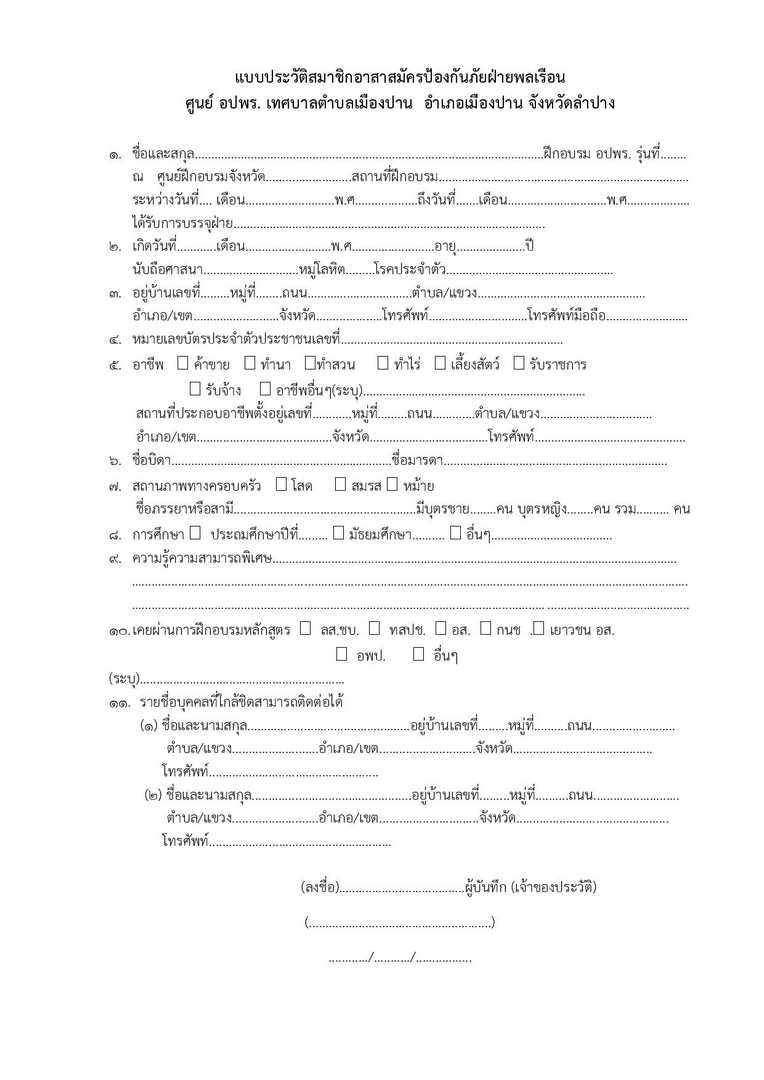 แบบประวัติสมาชิกอาสาสมัครป้องกันภัยฝ่ายพลเรือน
ศูนย์ อปพร. เทศบาลตำบลเมืองปาน อำเภอเมืองปาน จังหวัดลำปาง
๑. ชื่อและสกุล..........................................................................................................ฝึกอบรม อปพร. รุ่นที่........
ณ ศูนย์ฝึกอบรมจังหวัด..........................สถานที่ฝึกอบรม............................................................................
ระหว่างวันที่.... เดือน...........................พ.ศ...................ถึงวันที่.......เดือน..............................พ.ศ...................
ได้รับการบรรจุฝ่าย...............................................................................................
๒. เกิดวันที่............เดือน..........................พ.ศ.........................อายุ.....................ปี
นับถือศาสนา.............................หมู่โลหิต.........โรคประจำตัว...................................................
๓. อยู่บ้านเลขที่.........หมู่ที่........ถนน................................ตำบล/แขวง...................................................
อำเภอ/เขต..........................จังหวัด....................โทรศัพท์..............................โทรศัพท์มือถือ.........................
๔. หมายเลขบัตรประจำตัวประชาชนเลขที่....................................................................
๕. อาชีพ ☐ ค้าขาย ☐ ทำนา ☐ทำสวน ☐ ทำไร่ ☐ เลี้ยงสัตว์ ☐ รับราชการ
☐ รับจ้าง ☐ อาชีพอื่นๆ(ระบุ)....................................................................
สถานที่ประกอบอาชีพตั้งอยู่เลขที่............หมู่ที่.........ถนน.............ตำบล/แขวง..................................
อำเภอ/เขต.........................................จังหวัด....................................โทรศัพท์..............................................
๖. ชื่อบิดา...................................................................ชื่อมารดา....................................................................
๗. สถานภาพทางครอบครัว ☐ โสด ☐ สมรส ☐ หม้าย
ชื่อภรรยาหรือสามี.......................................................มีบุตรชาย........คน บุตรหญิง........คน รวม.......... คน
๘. การศึกษา ☐ ประถมศึกษาปีที่......... ☐ มัธยมศึกษา.......... ☐ อื่นๆ.....................................
๙. ความรู้ความสามารถพิเศษ...........................................................................................................................
.........................................................................................................................................................................
.........................................................................................................................................................................
๑๐.เคยผ่านการฝึกอบรมหลักสูตร ☐ ลส.ชบ. ☐ ทสปช. ☐ อส. ☐ กนช .☐ เยาวชน อส.
☐ อพป. ☐ อื่นๆ
(ระบุ)..............................................................
๑๑. รายชื่อบุคคลที่ใกล้ชิดสามารถติดต่อได้
(๑) ชื่อและนามสกุล.................................................อยู่บ้านเลขที่.........หมู่ที่..........ถนน.........................
ตำบล/แขวง..........................อำเภอ/เขต.............................จังหวัด..........................................
โทรศัพท์...................................................
(๒) ชื่อและนามสกุล................................................อยู่บ้านเลขที่.........หมู่ที่..........ถนน..........................
ตำบล/แขวง..........................อำเภอ/เขต..............................จังหวัด..............................................
โทรศัพท์.......................................................
(ลงชื่อ)......................................ผู้บันทึก (เจ้าของประวัติ)
(.......................................................)
............/.........../.................